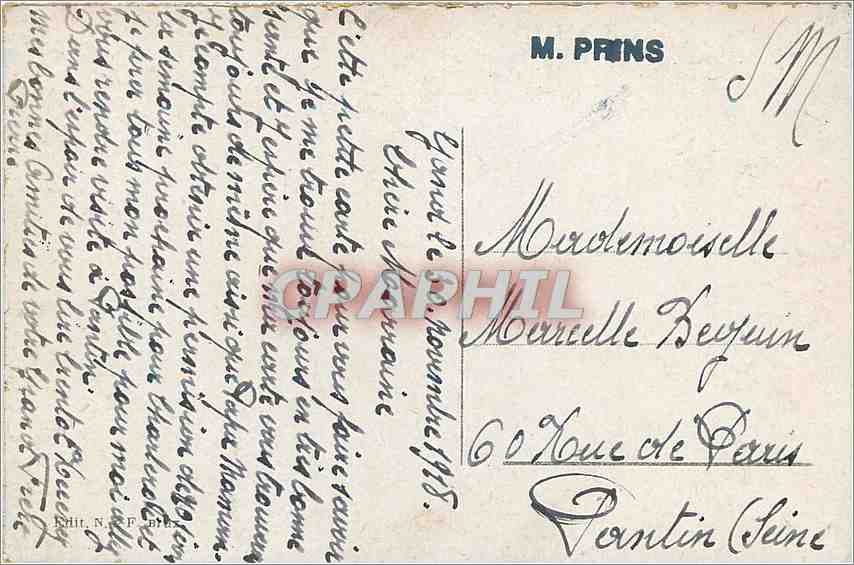 M. PRINS
SM
Gand le 30 novembre 1918.
Chère Marraine
Cette petite carte pour vous faire savoir
que je me trouve toujours en très bonne
santé et j'espère que ma carte vous trouvera
toujours de même ainsi que Papa Maman.
Je compte obtenir une permission de 10 jours
la semaine prochaine pour Charleroi et
je ferai tout mon possible pour moi
vous rendre visite à Pantin.
Dans l'espoir de vous lire bientôt
mes bonnes amitiés de votre grand
Mademoiselle
Marcelle
60 Rue de Paris
Pantin (Seine
Edit. N. F. Brux.
CPAPHIL